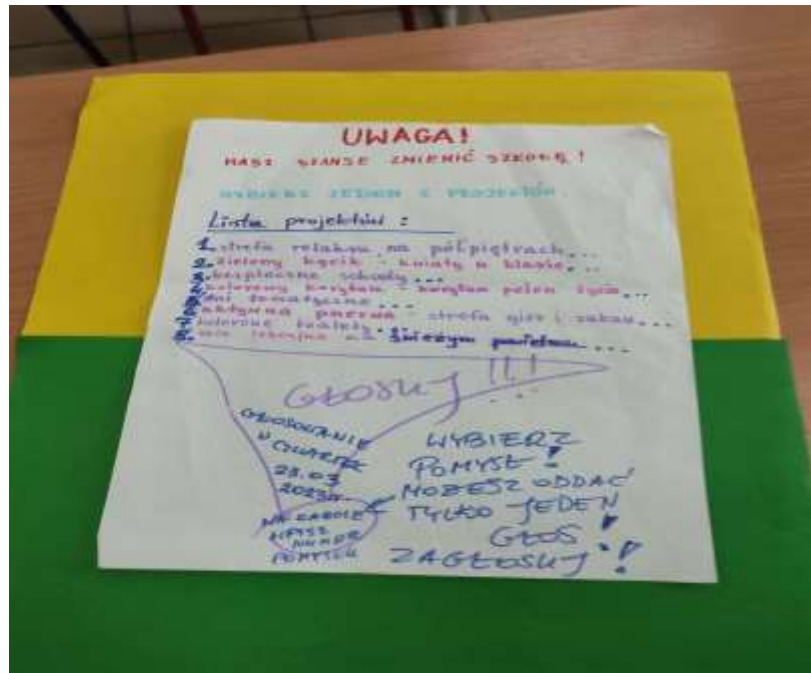 UWAGA!
MASZ SZANSE ZMIENIĆ SZKOŁĘ!
WYBIERZ JEDEN Z PROJEKTÓW
Lista projektów:
1. strefa relaksu na półpiętrach...
2. zielony kącik - kwiaty w klasie...
3. bezpieczne schody...
4. kolorowy korytarz - korytarz pełen życia...
5. dni tematyczne...
6. aktywna przerwa - strefa gier i zabaw...
7. kolorowe toalety...
8. lekcyjna na świeżym powietrzu...
GŁOSUJ!!!
GŁOSOWANIE
W CZWARTEK
23.03
2023r.
NA KARCIE
WPISZ
NUMER
POMYSŁU
WYBIERZ
POMYSŁ!
MOŻESZ ODDAĆ
TYLKO JEDEN
GŁOS!
ZAGŁOSUJ!